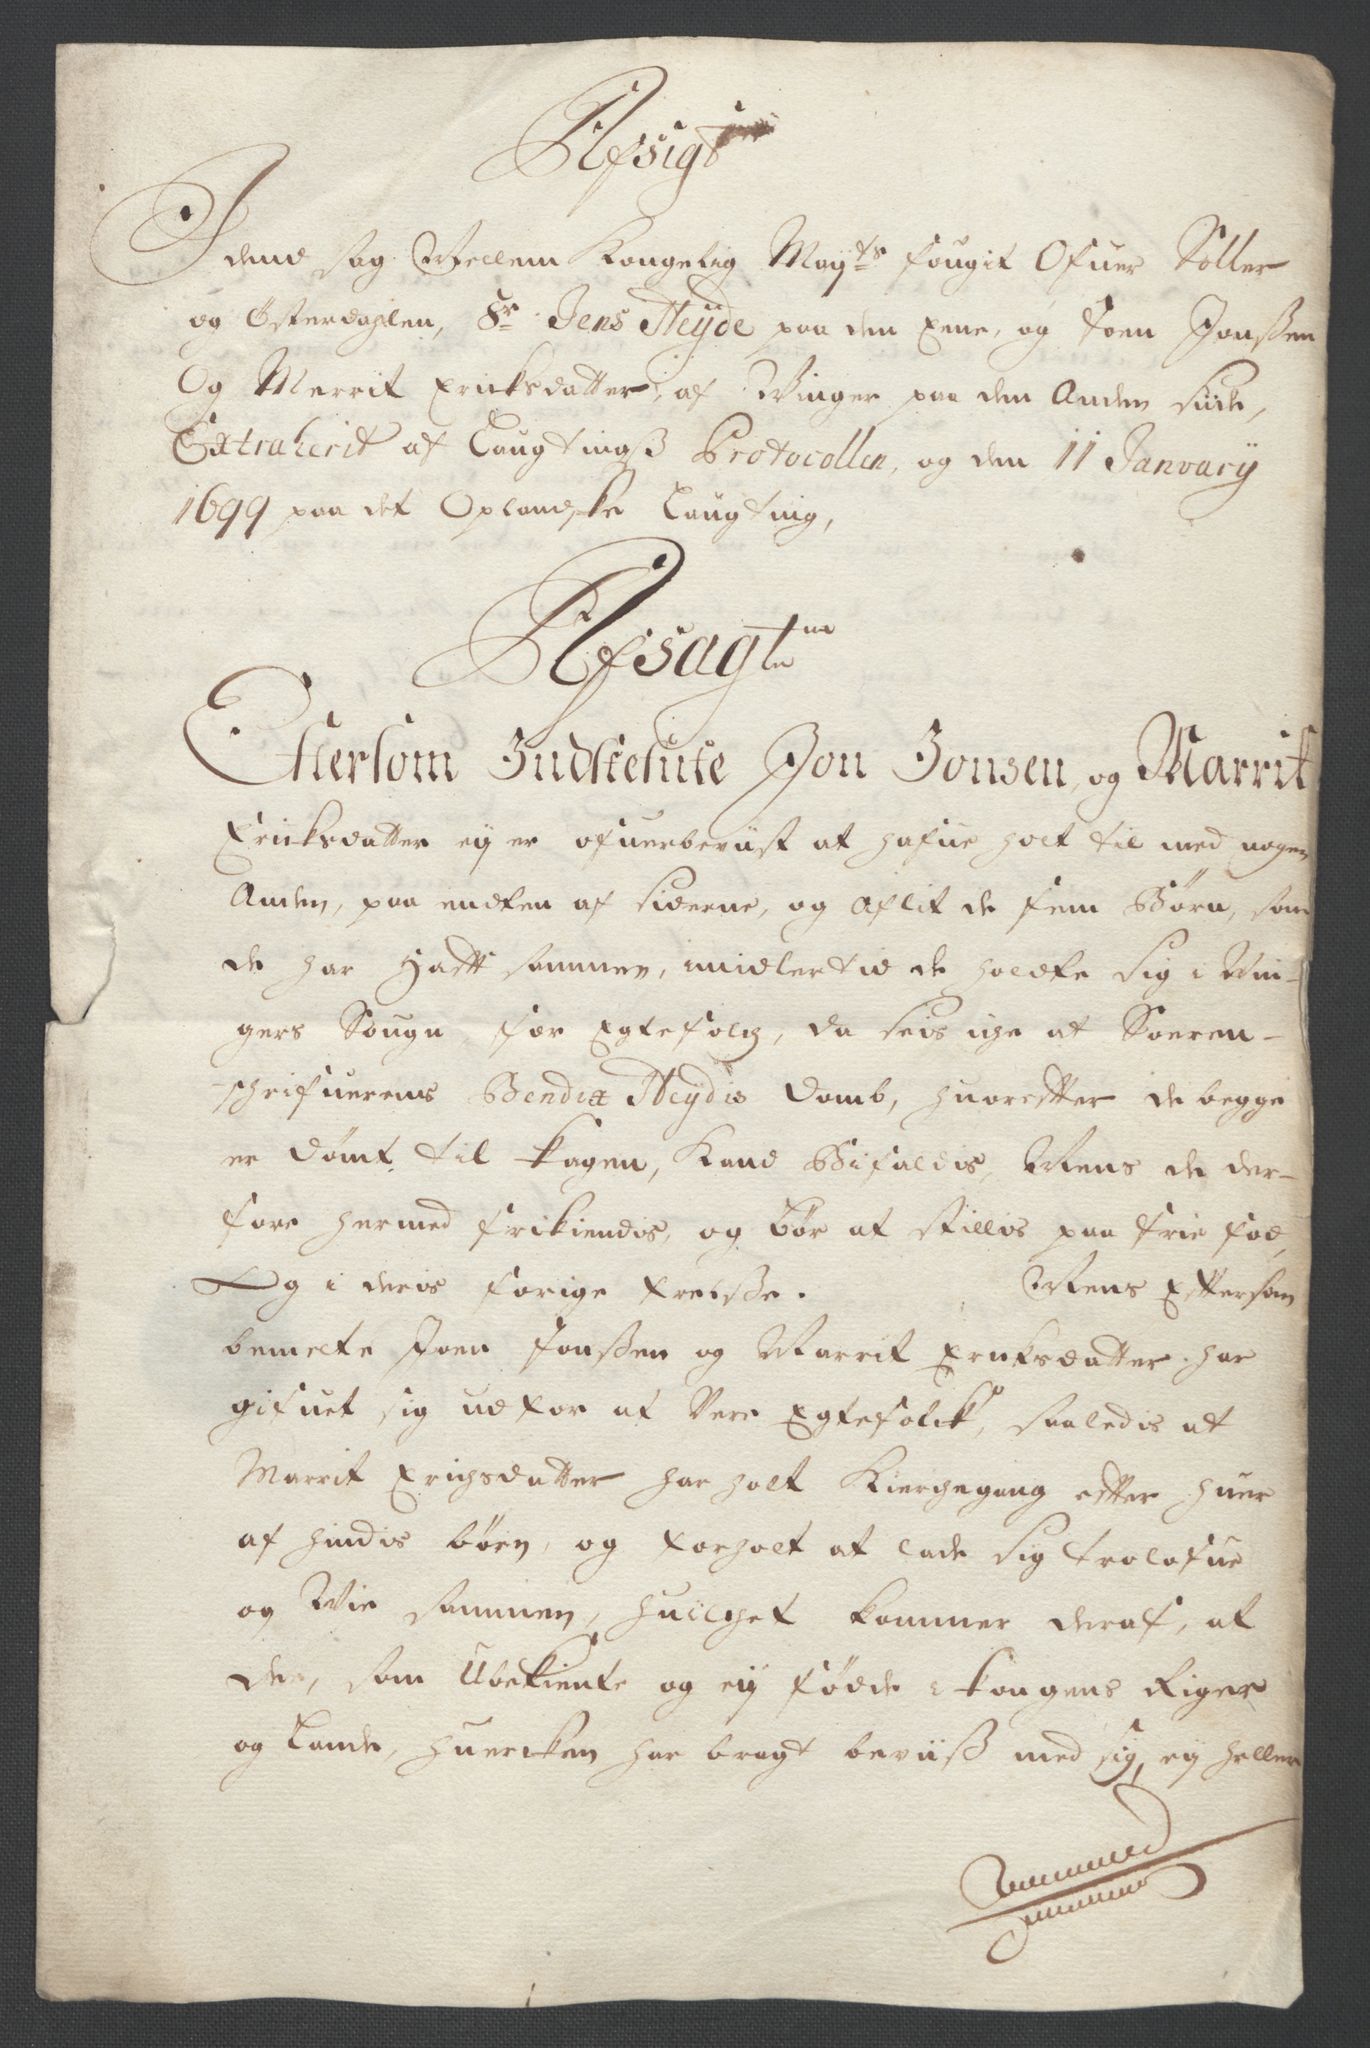 Afsigt
I dend sag Mellem Kongelig Maÿts fougit Ofuer Soller
og Østerdahlen, Sr Jens Heÿde paa den Eene, og Joen Jonßen
Og Merrit Ericksdatter, af Winger paa den Anden siide,
Extraherit af Laugtingß Protocollen, og den 11 Janvarij
1699 paa det Oplandske Laugting,
Afsagt
Eftersom Indstefnte Jon Jonsen, og Marrit
Ericksdatter eÿ er ofuerbeviist at hafue holt til med nogen
Anden, paa endten af siderne, og Aflit de fem Børn, som
de har Hatt sammen, imidlertid de holdte sig i Win-
gers Sougn for Egtefolch, da seis iche at Soeren-
schrifuerens Bendix Heÿdis Domb, huoretter de begge
er dømt til kagen, Kand Bifaldis, Mens de der-
fore hermed frikiendis, og bør at stillis paa frie fod,
Og i deris forige frelße. Mens Efftersom
bemelte Joen Jonßen og Marrit Ericksdatter har
gifuet sig ud for at Vere Egtefolck, saaledis at
Marrit Erichsdatter har holt Kierchegang etter huer
af hindis børn, og forholt at lade sig trolofue
og Vie sammen, huilchet kommer deraf, at
de, som Ubekiente og eÿ fødde i kongens Riger
og Lande, huercken har bragt beviiß med sig, eÿ heller